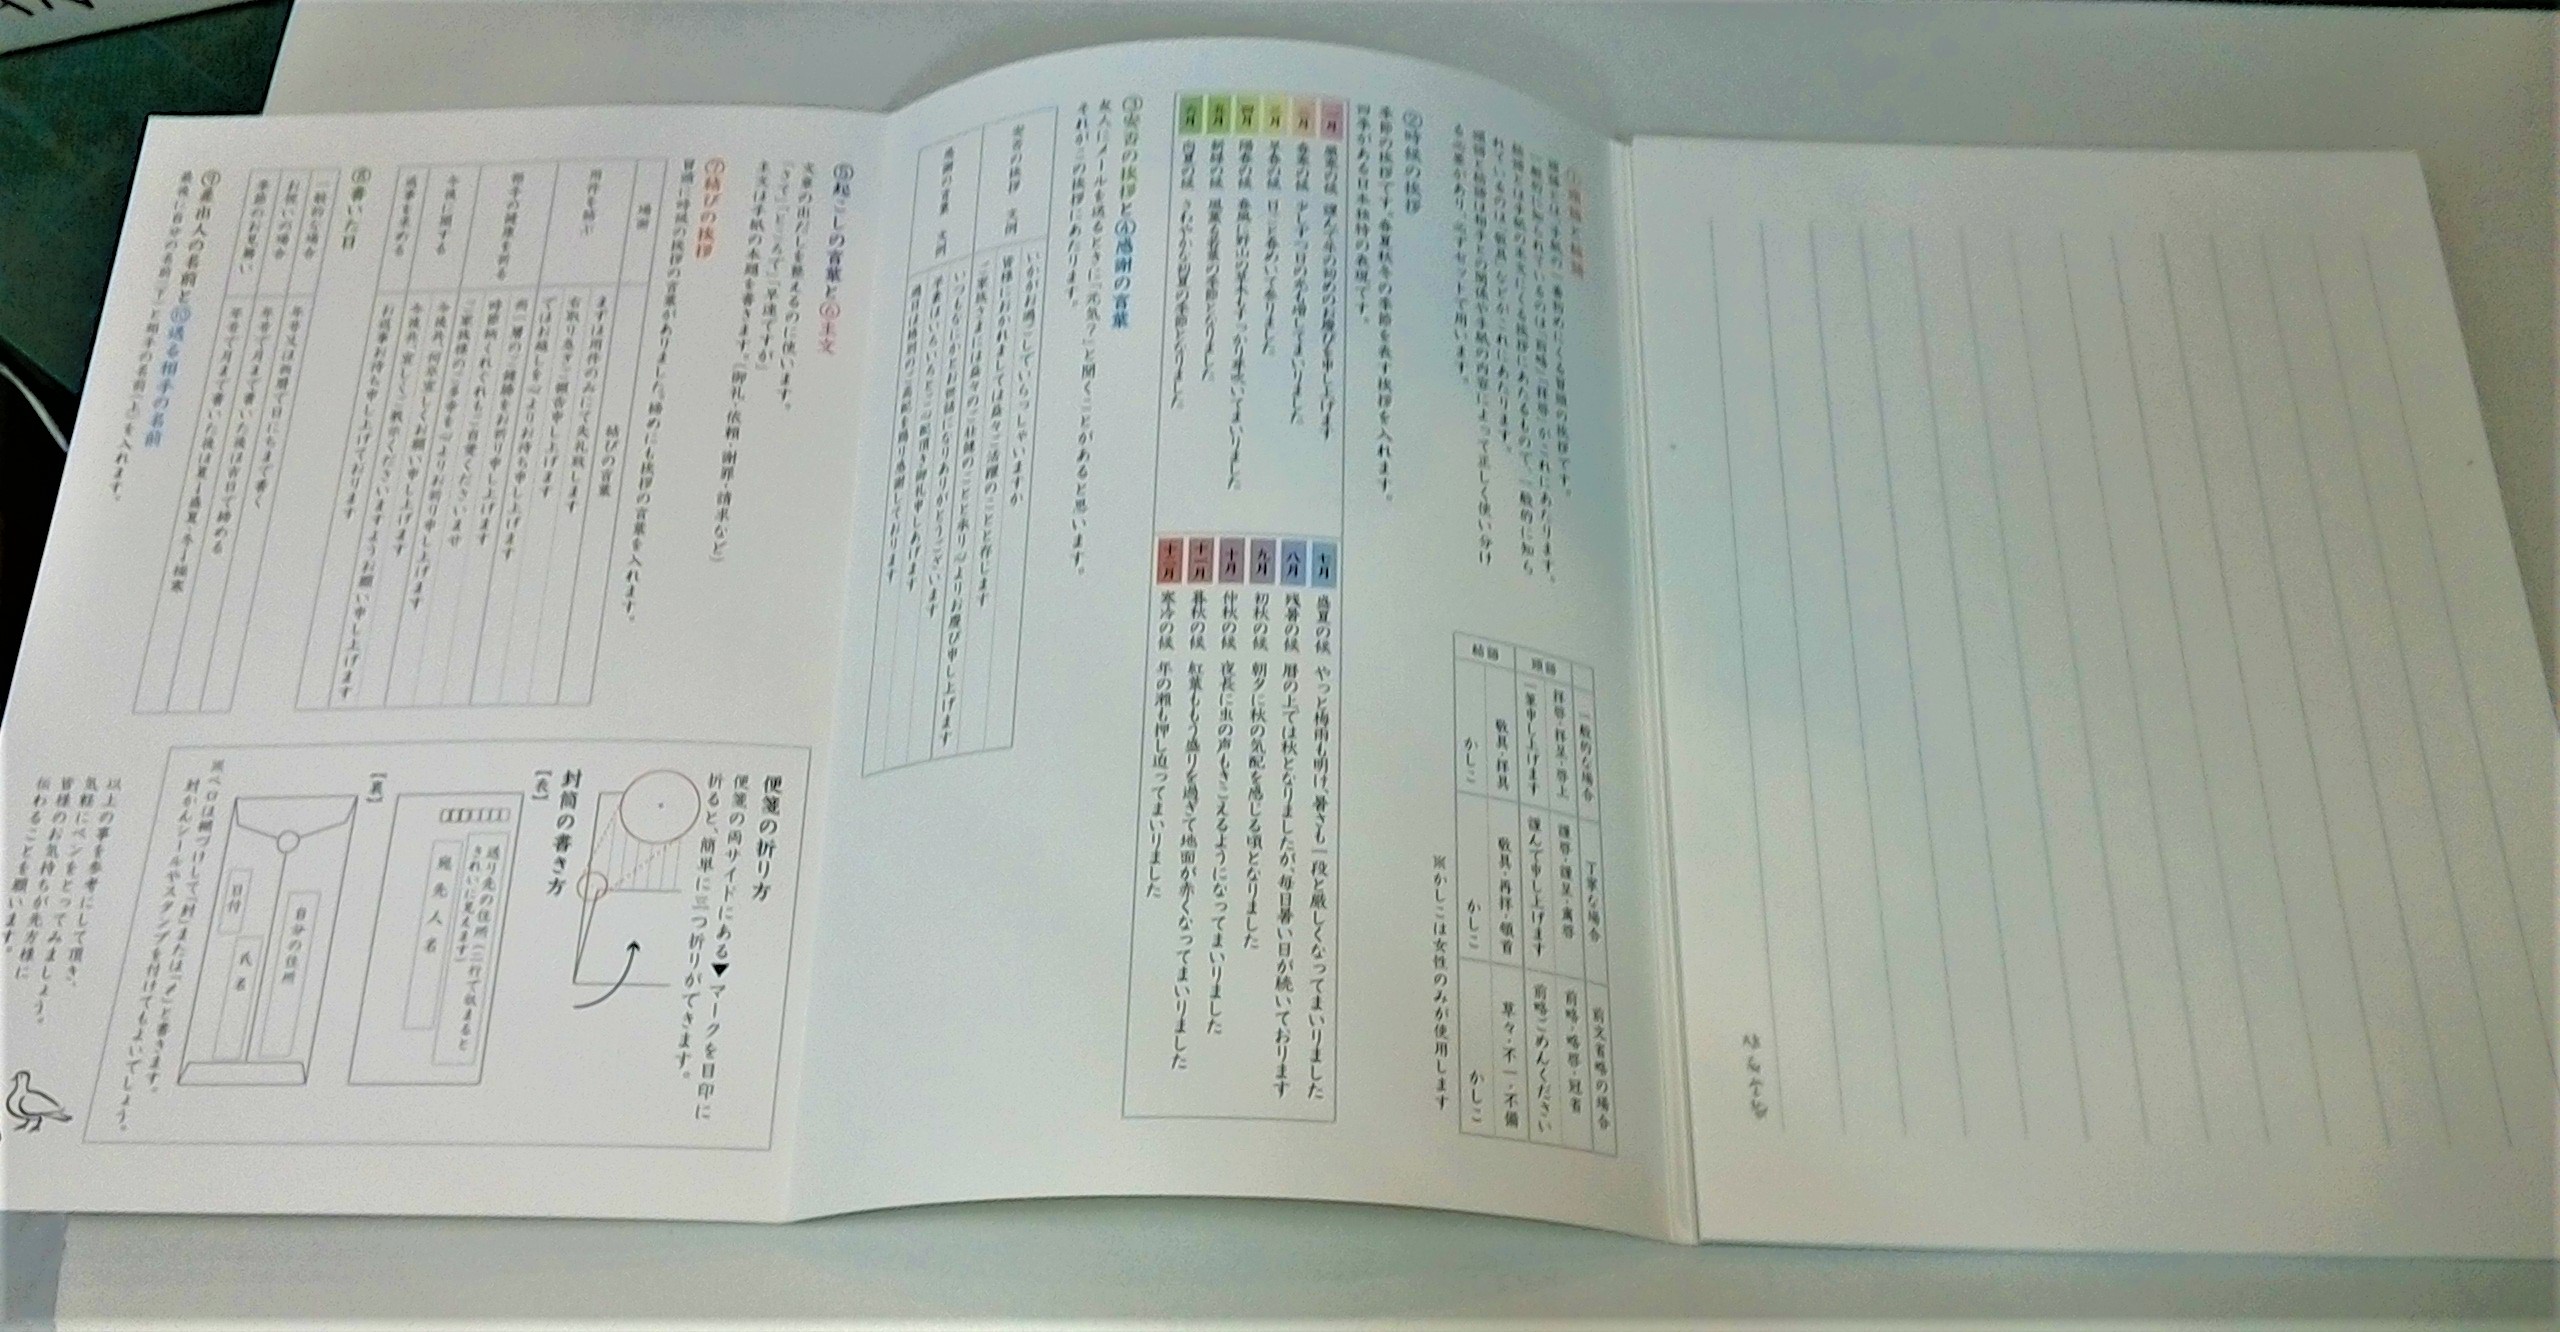 ①頭語と結語
頭語とは手紙の一番初めにくる冒頭の挨拶です。
一般的に知られているのは「前略」「拝啓」がこれにあたります。
結語とは手紙の本文にくる挨拶にあたるもので、一般的に知ら
れているのは「敬具」などがこれにあたります。
頭語と結語は相手との関係や手紙の内容によって正しく使い分け
る必要があり、必ずセットで用います。
一般的な場合
丁寧な場合
前文省略の場合
頭語
拝啓・拝呈・啓上
謹啓・謹呈・粛啓
前略・略啓・冠省
一筆申し上げます
謹んで申し上げます
前略ごめんください
結語
敬具・拝具
敬具・再拝・頓首
草々・不一・不備
かしこ
かしこ
かしこ
※かしこは女性のみが使用します
②時候の挨拶
季節の挨拶です。春夏秋冬の季節を表す挨拶を入れます。
四季がある日本独特の表現です。
一月 厳寒の候 謹んで年の初めのお慶びを申し上げます
二月 春寒の候 少しずつ日の光も増してまいりました
三月 早春の候 日ごと春めいて参りました
四月 陽春の候 春風に野山の草木もすっかり芽吹いてまいりました
五月 新緑の候 風薫る若葉の季節となりました
六月 向夏の候 さわやかな初夏の季節となりました
七月 盛夏の候 やっと梅雨も明け、暑さも一段と厳しくなってまいりました
八月 残暑の候 暦の上では秋となりましたが、毎日暑い日が続いております
九月 初秋の候 朝夕に秋の気配を感じる頃となりました
十月 仲秋の候 夜長に虫の声もきこえるようになってまいりました
十一月 暮秋の候 紅葉ももう盛りを過ぎて地面が赤くなってまいりました
十二月 寒冷の候 年の瀬も押し迫ってまいりました
③安否の挨拶と④感謝の言葉
友人にメールを送るときに「元気？」と聞くことがあると思います。
それがこの挨拶にあたります。
安否の挨拶 文例
いかがお過ごしていらっしゃいますか
皆様におかれましては益々ご活躍のことと存じます
ご家族さまには益々のご壮健のことと承り、心よりお慶び申し上げます
感謝の言葉 文例
いつもなにかとお世話になりありがとうございます
平素はいろいろとご心配頂き御礼申しあげます
過日は格別のご高配を賜り感謝しております
⑤起こしの言葉と⑥主文
文章の出だしを整えるのに使います。
「さて」「ところで」「早速ですが」
主文は手紙の本題を書きます。（御礼・依頼・謝罪・請求など）
⑦結びの挨拶
冒頭に時候の挨拶の言葉がありました。締めにも挨拶の言葉を入れます。
場面
結びの言葉
用件を結ぶ
まずは用件のみにて失礼致します
右取り急ぎご報告申し上げます
ではお越しを心よりお待ち申し上げます
相手の健康を祈る
尚一層のご健勝をお祈り申し上げます
時節柄くれぐれもご自愛くださいませ
ご家族様のご多幸を心よりお祈り申し上げます
今後に関する
今後共、何卒宜しくお願い申し上げます
今後共、宜しくご教示くださいますようお願い申し上げます
返事を求める
お返事お待ち申し上げております
⑧書いた日
一般的な場合
年号又は西暦で日にちまで書く
お祝いの場合
年号で月まで書いた後は吉日で締める
季節のお見舞い
年号で月まで書いた後は夏→盛夏・冬→極寒
⑨差出人の名前と⑩送る相手の名前
最後に自分の名前（下）と相手の名前（上）を入れます。
便箋の折り方
便箋の両サイドにある▼マークを目印に
折ると、簡単に三つ折りができます。
封筒の書き方
【表】
送り先の住所（二行で収まると
きれいに見えます）
宛先人名
【裏】
自分の住所
氏名
日付
※ベロは糊づけして「封」または「〆」と書きます。
封かんシールやスタンプを付けてもよいでしょう。
以上の事を参考にして頂き、
気軽にペンをとってみましょう。
皆様のお気持ちが先方様に
伝わることを願います。